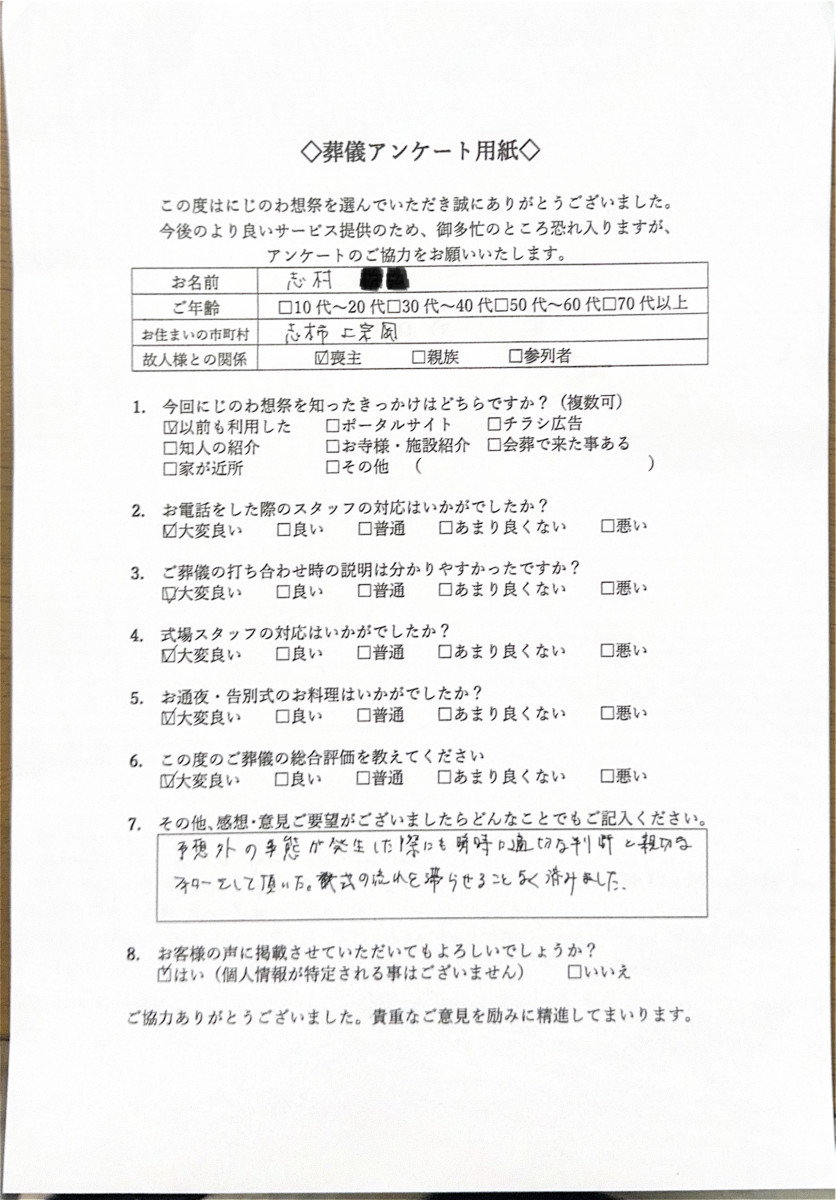 ◇葬儀アンケート用紙◇
この度はにじのわ想祭を選んでいただき誠にありがとうございました。
今後のより良いサービス提供のため、御多忙のところ恐れ入りますが、
アンケートのご協力をお願いいたします。
お名前 志村
ご年齢 □10代～20代□30代～40代□50代～60代□70代以上
お住まいの市町村 志木市 上宗岡
故人様との関係 ☑喪主 □親族 □参列者
1. 今回にじのわ想祭を知ったきっかけはどちらですか？（複数可）
☑以前も利用した □ポータルサイト □チラシ広告
□知人の紹介 □お寺様・施設紹介 □会葬で来た事ある
□家が近所 □その他 （ ）
2. お電話をした際のスタッフの対応はいかがでしたか？
☑大変良い □良い □普通 □あまり良くない □悪い
3. ご葬儀の打ち合わせ時の説明は分かりやすかったですか？
☑大変良い □良い □普通 □あまり良くない □悪い
4. 式場スタッフの対応はいかがでしたか？
☑大変良い □良い □普通 □あまり良くない □悪い
5. お通夜・告別式のお料理はいかがでしたか？
☑大変良い □良い □普通 □あまり良くない □悪い
6. この度のご葬儀の総合評価を教えてください
☑大変良い □良い □普通 □あまり良くない □悪い
7. その他、感想・意見ご要望がございましたらどんなことでもご記入ください。
予想外の事態が発生した際にも瞬時に適切な判断と親切な
フォローをして頂いた。式の流れを滞らせることなく済みました。
8. お客様の声に掲載させていただいてもよろしいでしょうか？
☑はい（個人情報が特定される事はございません） □いいえ
ご協力ありがとうございました。貴重なご意見を励みに精進してまいります。